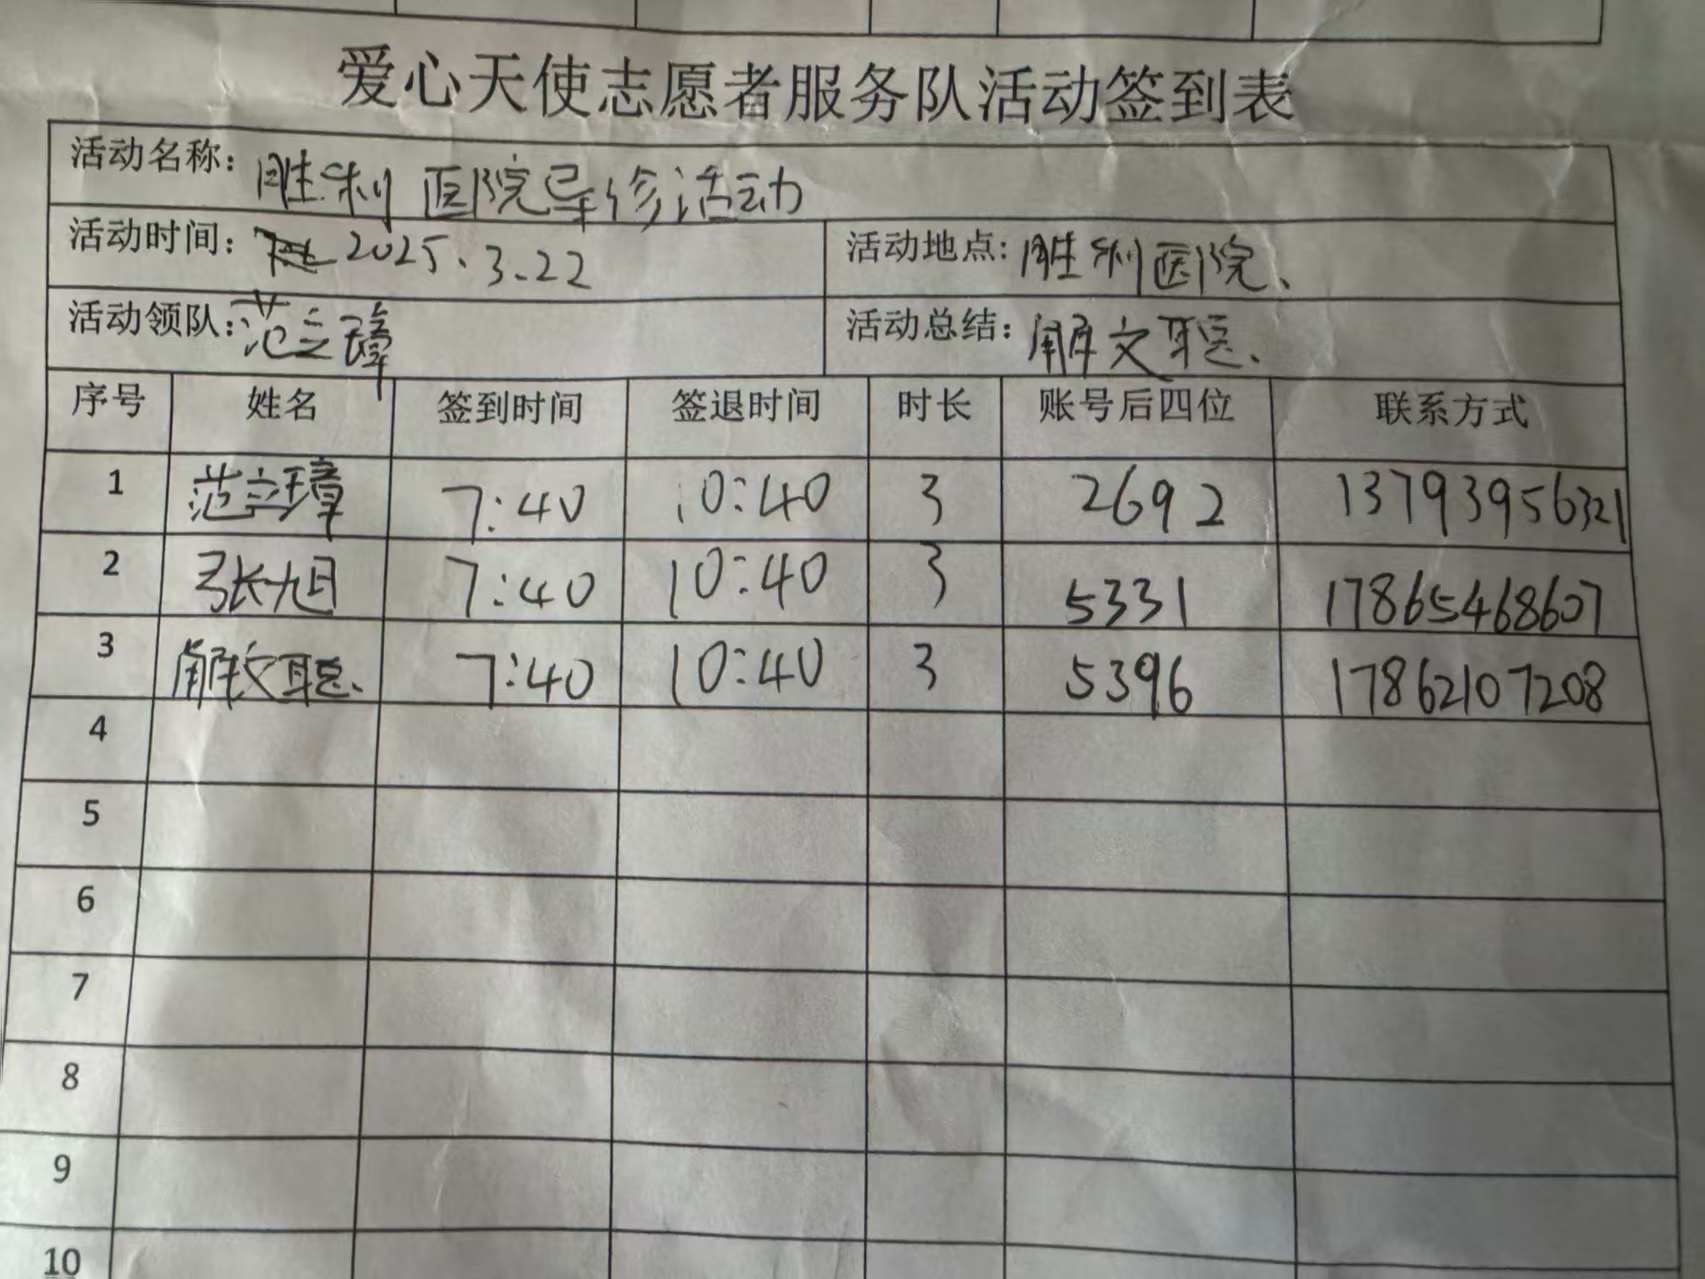 爱心天使志愿者服务队活动签到表
活动名称：胜利医院导诊活动
活动时间：2025.3.22 活动地点：胜利医院、
活动领队：范立璋 活动总结：解文聪、
序号 姓名 签到时间 签退时间 时长 账号后四位 联系方式
1 范立璋 7:40 10:40 3 2692 13793956321
2 张旭 7:40 10:40 3 5331 17865468607
3 解文聪、 7:40 10:40 3 5396 17862107208
4
5
6
7
8
9
10